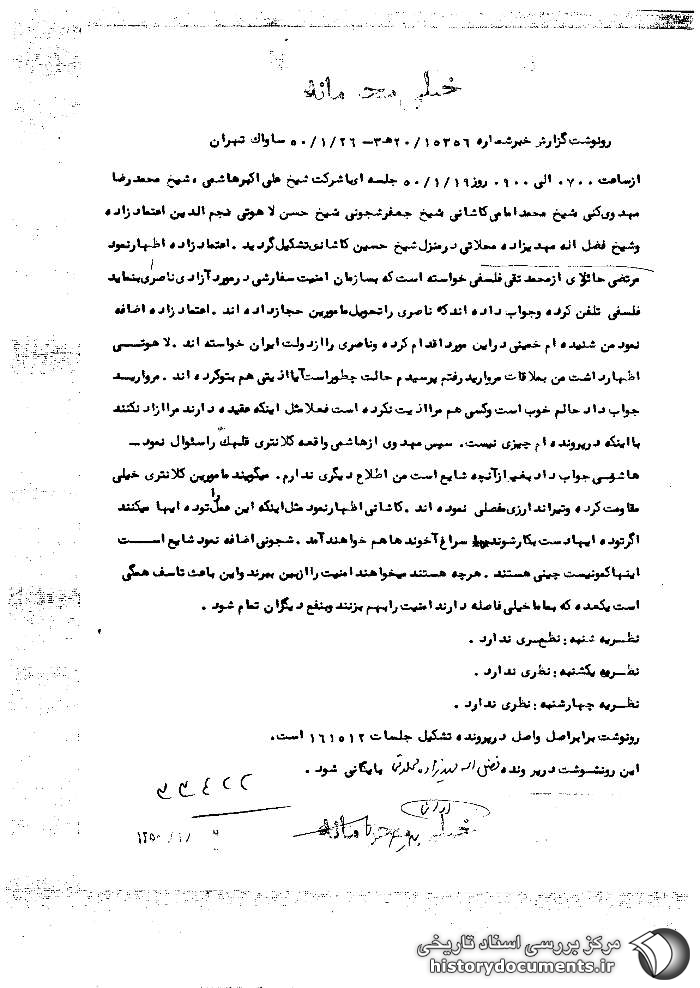 خیلی محرمانه
رونوشت گزارش خبر شماره ۲۰/۱۵۳۵۶هـ۳ – ۵۰/۱/۲۶ ساواک تهران
از ساعت ۰۷۰۰ الی ۰۹۰۰ روز ۵۰/۱/۱۹ جلسه ای با شرکت شیخ علی اکبر هاشمی ، شیخ محمد رضا
مهدوی کنی شیخ محمد امامی کاشانی شیخ جعفر شجونی شیخ حسن لاهوتی نجم الدین اعتماد زاده
و شیخ فضل اله مهدیزاده محلاتی در منزل شیخ حسین کاشانی تشکیل گردید . اعتماد زاده اظهار نمود
مرتضی حائری از محمد تقی فلسفی خواسته است که بسازمان امنیت سفارشی در مورد آزادی ناصری بنماید
فلسفی تلفن کرده و جواب داده اند که ناصری را تحویل مامورین حجاز داده اند . اعتماد زاده اضافه
نمود من شنیده ام خمینی در این مورد اقدام کرده و ناصری را از دولت ایران خواسته اند . لاهوتی
اظهار داشت من بملاقات مروارید رفتم پرسیدم حالت چطور است آیا اذیتی هم بتو کرده اند . مروارید
جواب داد حالم خوب است و کسی هم مرا اذیت نکرده است فعلا مثل اینکه عقیده دارند مرا ازاد نکنند
با اینکه در پرونده ام چیزی نیست . سپس مهدوی از هاشمی واقعه کلانتری قلهک را سئوال نمود –
هاشمی جواب داد بغیر از آنچه شایع است من اطلاع دیگری ندارم . میگویند مامورین کلانتری خیلی
مقاومت کرده و تیراندارزی مفصلی نموده اند . کاشانی اظهار نمود مثل اینکه این عمل را توده ایها میکنند
اگر توده ایها دست بکار شوند سراغ آخوندها هم خواهند آمد . شجونی اضافه نمود شایع است
اینها کمونیست چینی هستند . هرچه هستند میخواهند امنیت را از بین ببرند و این باعث تاسف همگی
است یکعده که بما ها خیلی فاصله دارند امنیت را بهم بزنند و بنفع دیگران تمام شود .
نظریه شنبه : نظری ندارد .
نظریه یکشنبه : نظری ندارد .
نظریه چهارشنبه : نظری ندارد .
رونوشت برابر اصل واصل در پرونده تشکیل جلسات ۱۶۱۵۱۲ است .
این رونوشت در پرونده فضل اله مهدیزاده محلاتی بایگانی شود .
۳۳۴۲۲
خیلی محرمانه
مرکز بررسی اسناد تاریخی
historydocuments.ir